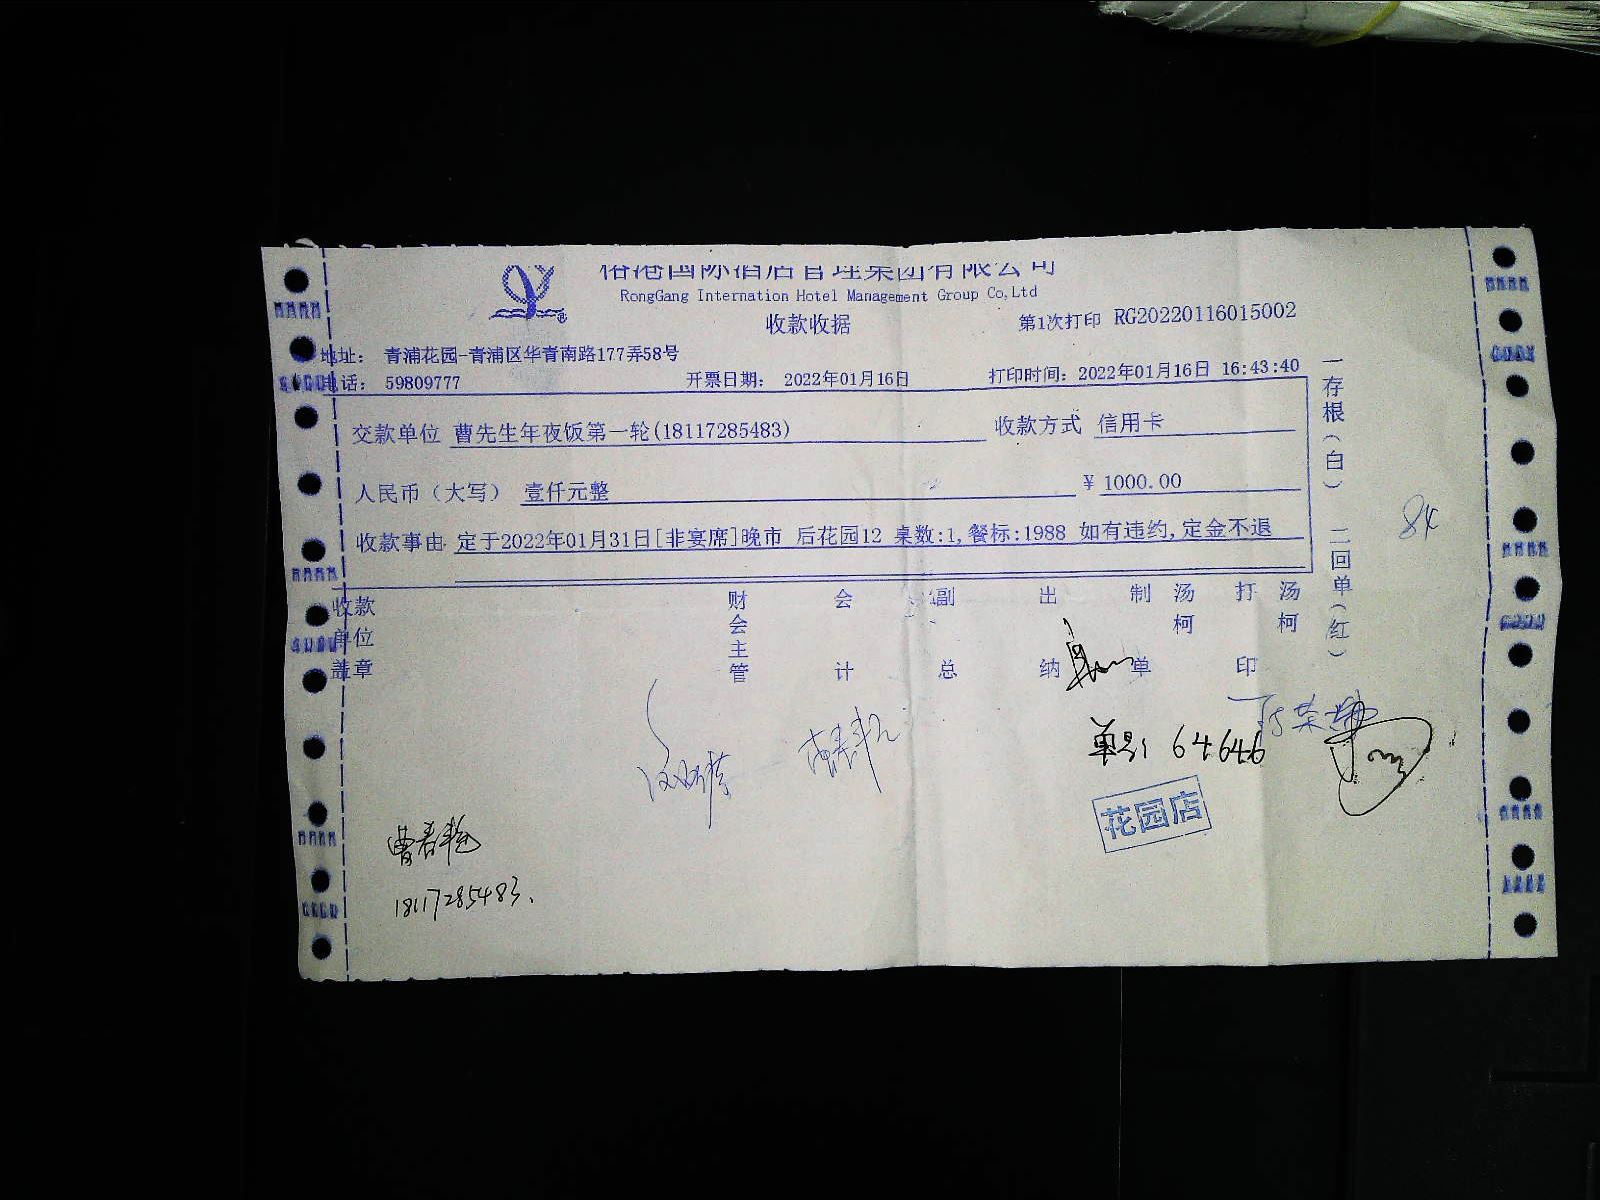 国际酒店管理集团有限公司
RongGang Internation Hotel Management Group Co,Ltd
收款收据
第1次打印 RG20220116015002
地址： 青浦花园-青浦区华青南路177弄58号
电话： 59809777
开票日期： 2022年01月16日
打印时间：2022年01月16日 16:43:40
交款单位 曹先生年夜饭第一轮(18117285483)
收款方式 信用卡
人民币（大写） 壹仟元整
¥ 1000.00
收款事由 定于2022年01月31日[非宴席]晚市 后花园12 桌数:1,餐标:1988 如有违约,定金不退
收款单位盖章
财会主管
会计
副总
出纳
制单 汤柯
打印 汤柯
一存根（白） 二回单（红）
单号: 64646
花园店
18117285483.